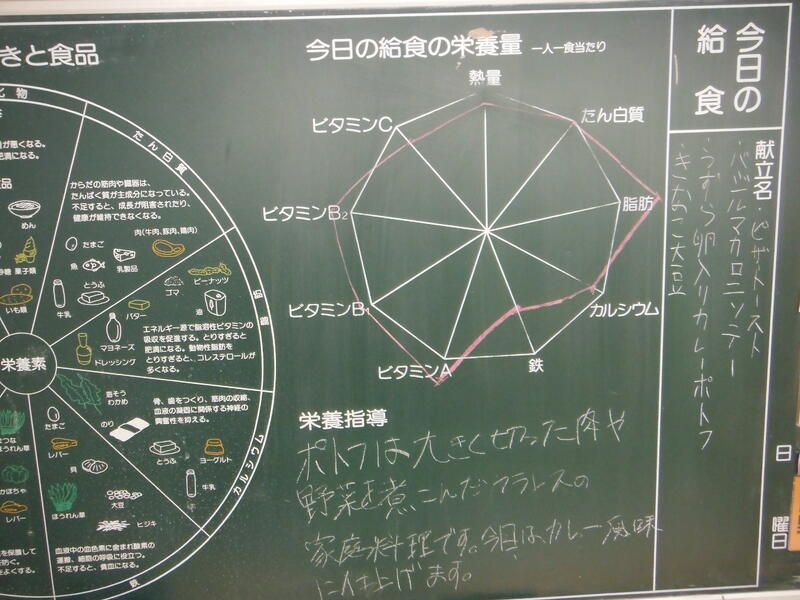 今日の
給食
献立名・ピザトースト
・バジルマカロニソテー
・うずら卵入りカレーポトフ
・きなこ大豆
日
曜日
今日の給食の栄養量 一人一食当たり
熱量
たん白質
脂肪
カルシウム
鉄
ビタミンA
ビタミンB₁
ビタミンB₂
ビタミンC
栄養指導
ポトフは大きく切った肉や
野菜を煮こんだフランスの
家庭料理です。今日は、カレー風味
に仕上げます。
きと食品
化物
が悪くなる。
肥満になる。
食品
めん
砂糖 菓子類
いも類
栄養素
たん白質
からだの筋肉や臓器は、
たんぱく質が主成分になっている。
不足すると、成長が阻害されたり、
健康が維持できなくなる。
肉(牛肉、豚肉、鶏肉)
たまご
魚
乳製品
牛乳
とうふ
ゴマ
ピーナッツ
脂肪
バター
油
マヨネーズ
ドレッシング
エネルギー源で脂溶性ビタミンの
吸収を促進する。とりすぎると
肥満になる。動物性脂肪を
とりすぎると、コレステロールが
多くなる。
カルシウム
骨、歯をつくり、筋肉の収縮、
血液の凝固に関係する神経の
興奮性を抑える。
海そう
わかめ
のり
とうふ
ヨーグルト
牛乳
鉄
たまご
レバー
貝
ほうれん草
大豆
ヒジキ
血液中の血色素に含まれ酸素の
運搬、細胞の呼吸に役立つ。
不足すると、貧血になる。
まつな
ほうれん草
かぼちゃ
レバー
を保護して
を防ぐ。
をよくする。